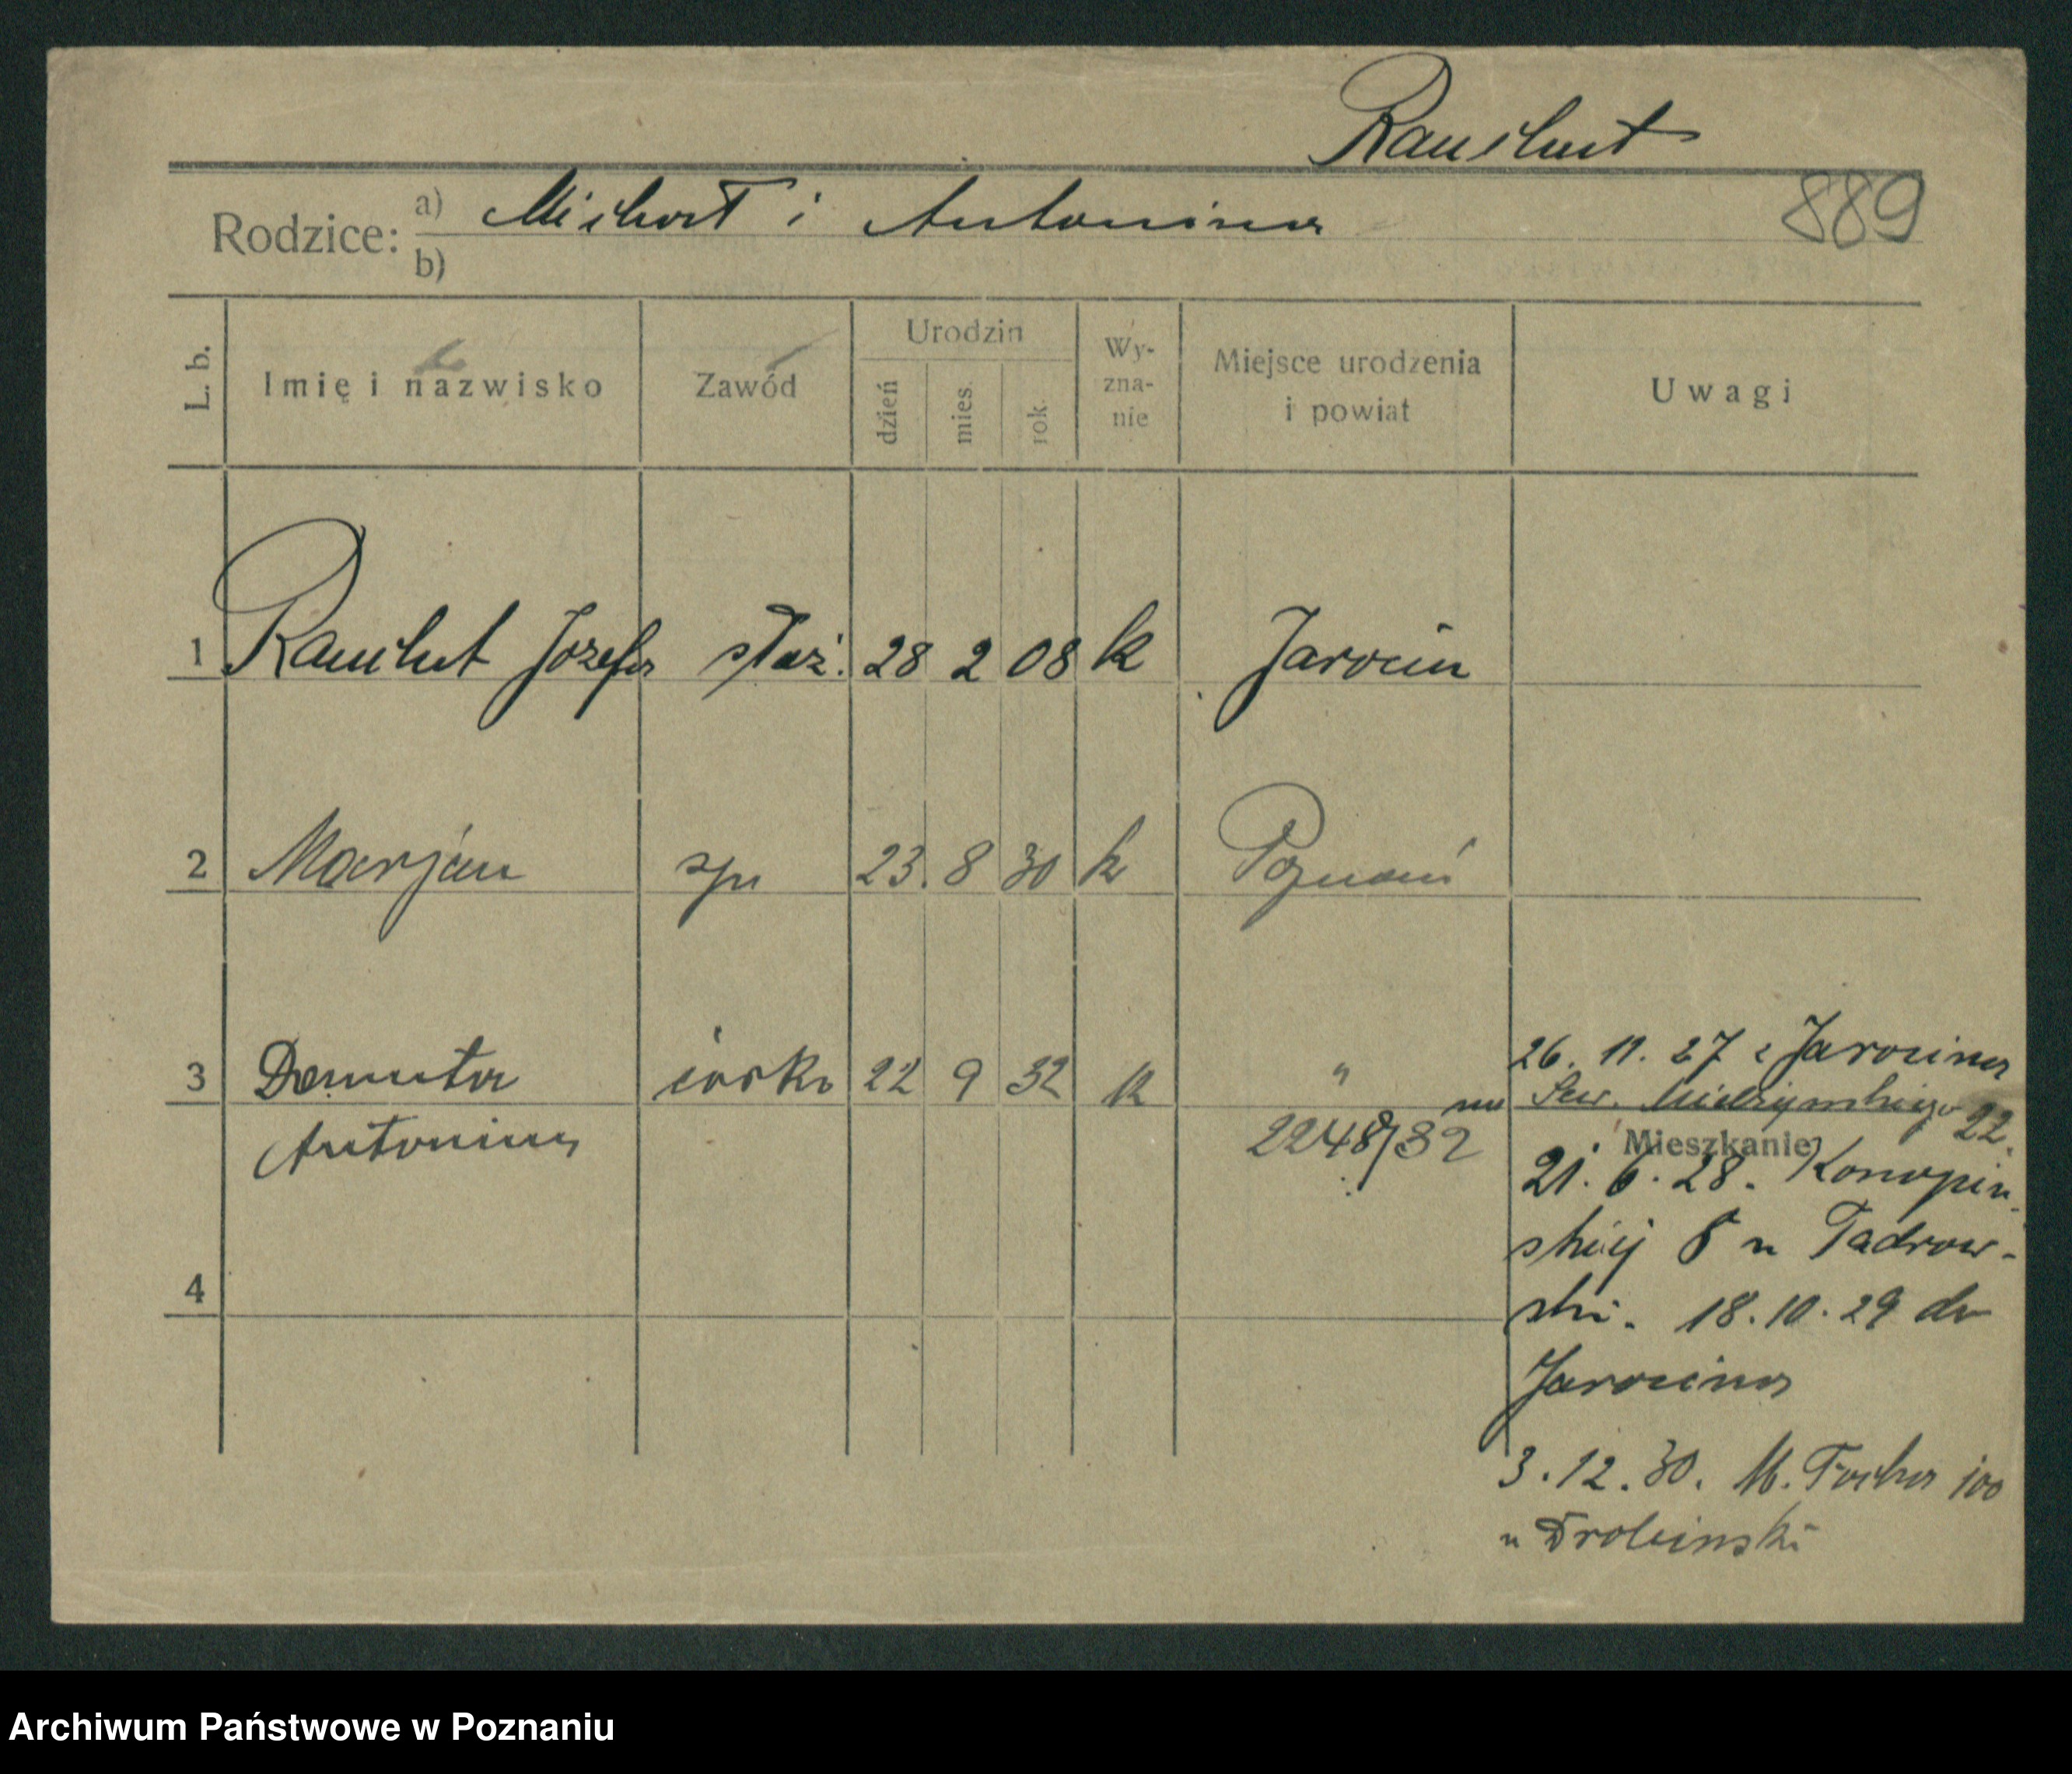 Rauchut
Rodzice: a) Michał i Antonina 889
b)
L. b. Imię i nazwisko Zawód Urodzin dzień mies. rok. Wy-zna-nie Miejsce urodzenia i powiat Uwagi
1 Rauchut Józefa służ. 28 2 08 k Jarocin
2 Marjan syn 23. 8 30 k Poznań
3 Danuta córka 22 9 32 k "
Antonina 2248/32
4
26. 11. 27 z Jarocina
na Sew. Mielżyńskiego 22.
Mieszkanie
21. 6. 28. Konopiń
skiej 8 u Tadrow-
ski. 18.10.29 do
Jarocina
3.12.30. M. Focha 100
u Drobinski
Archiwum Państwowe w Poznaniu